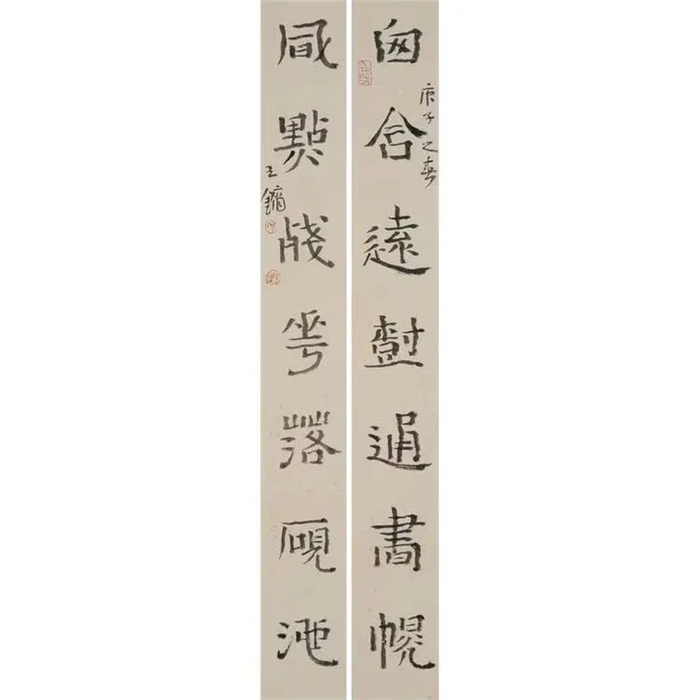 囱含遠樹通書幌
庚子之春
風點殘花落硯池
王鏞